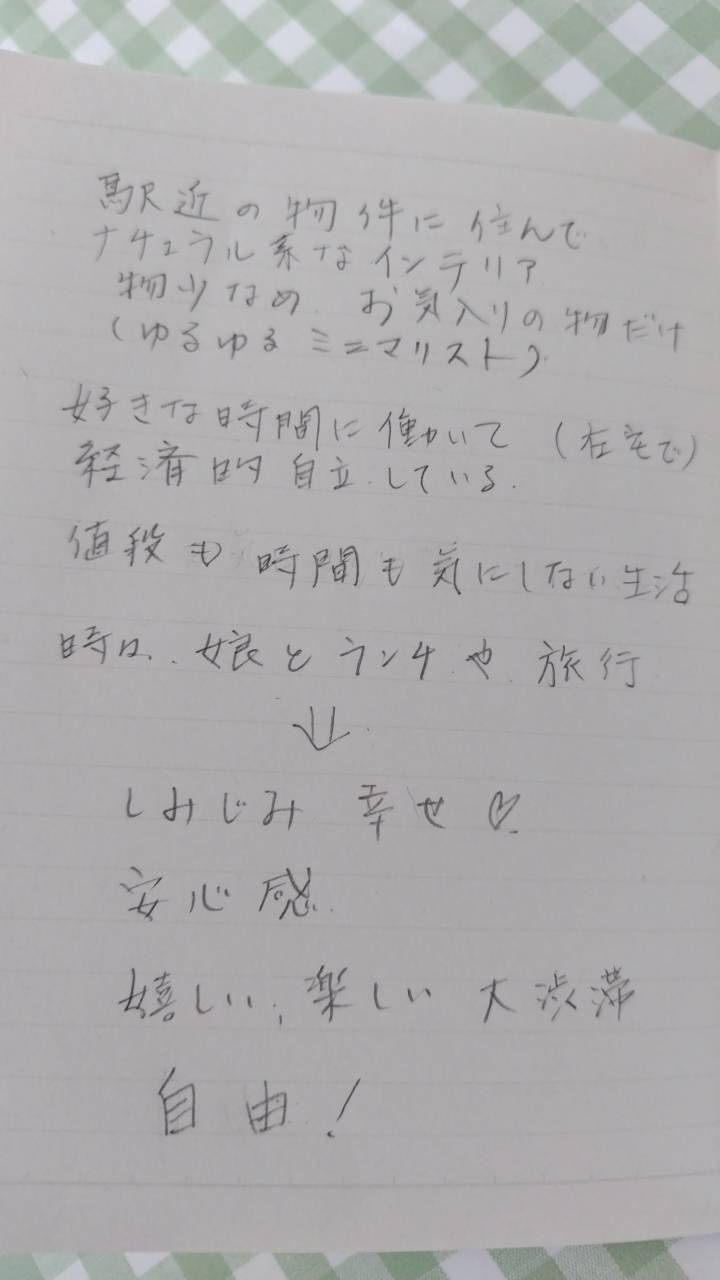 駅近の物件に住んで
ナチュラル系なインテリア
物少なめ、お気入りの物だけ
(ゆるゆるミニマリスト)
好きな時間に働いて (在宅で)
経済的自立している。
値段も時間も気にしない生活
時には、娘とランチや旅行
↓
しみじみ 幸せ♡
安心感
嬉しい、楽しい 大渋滞
自由!